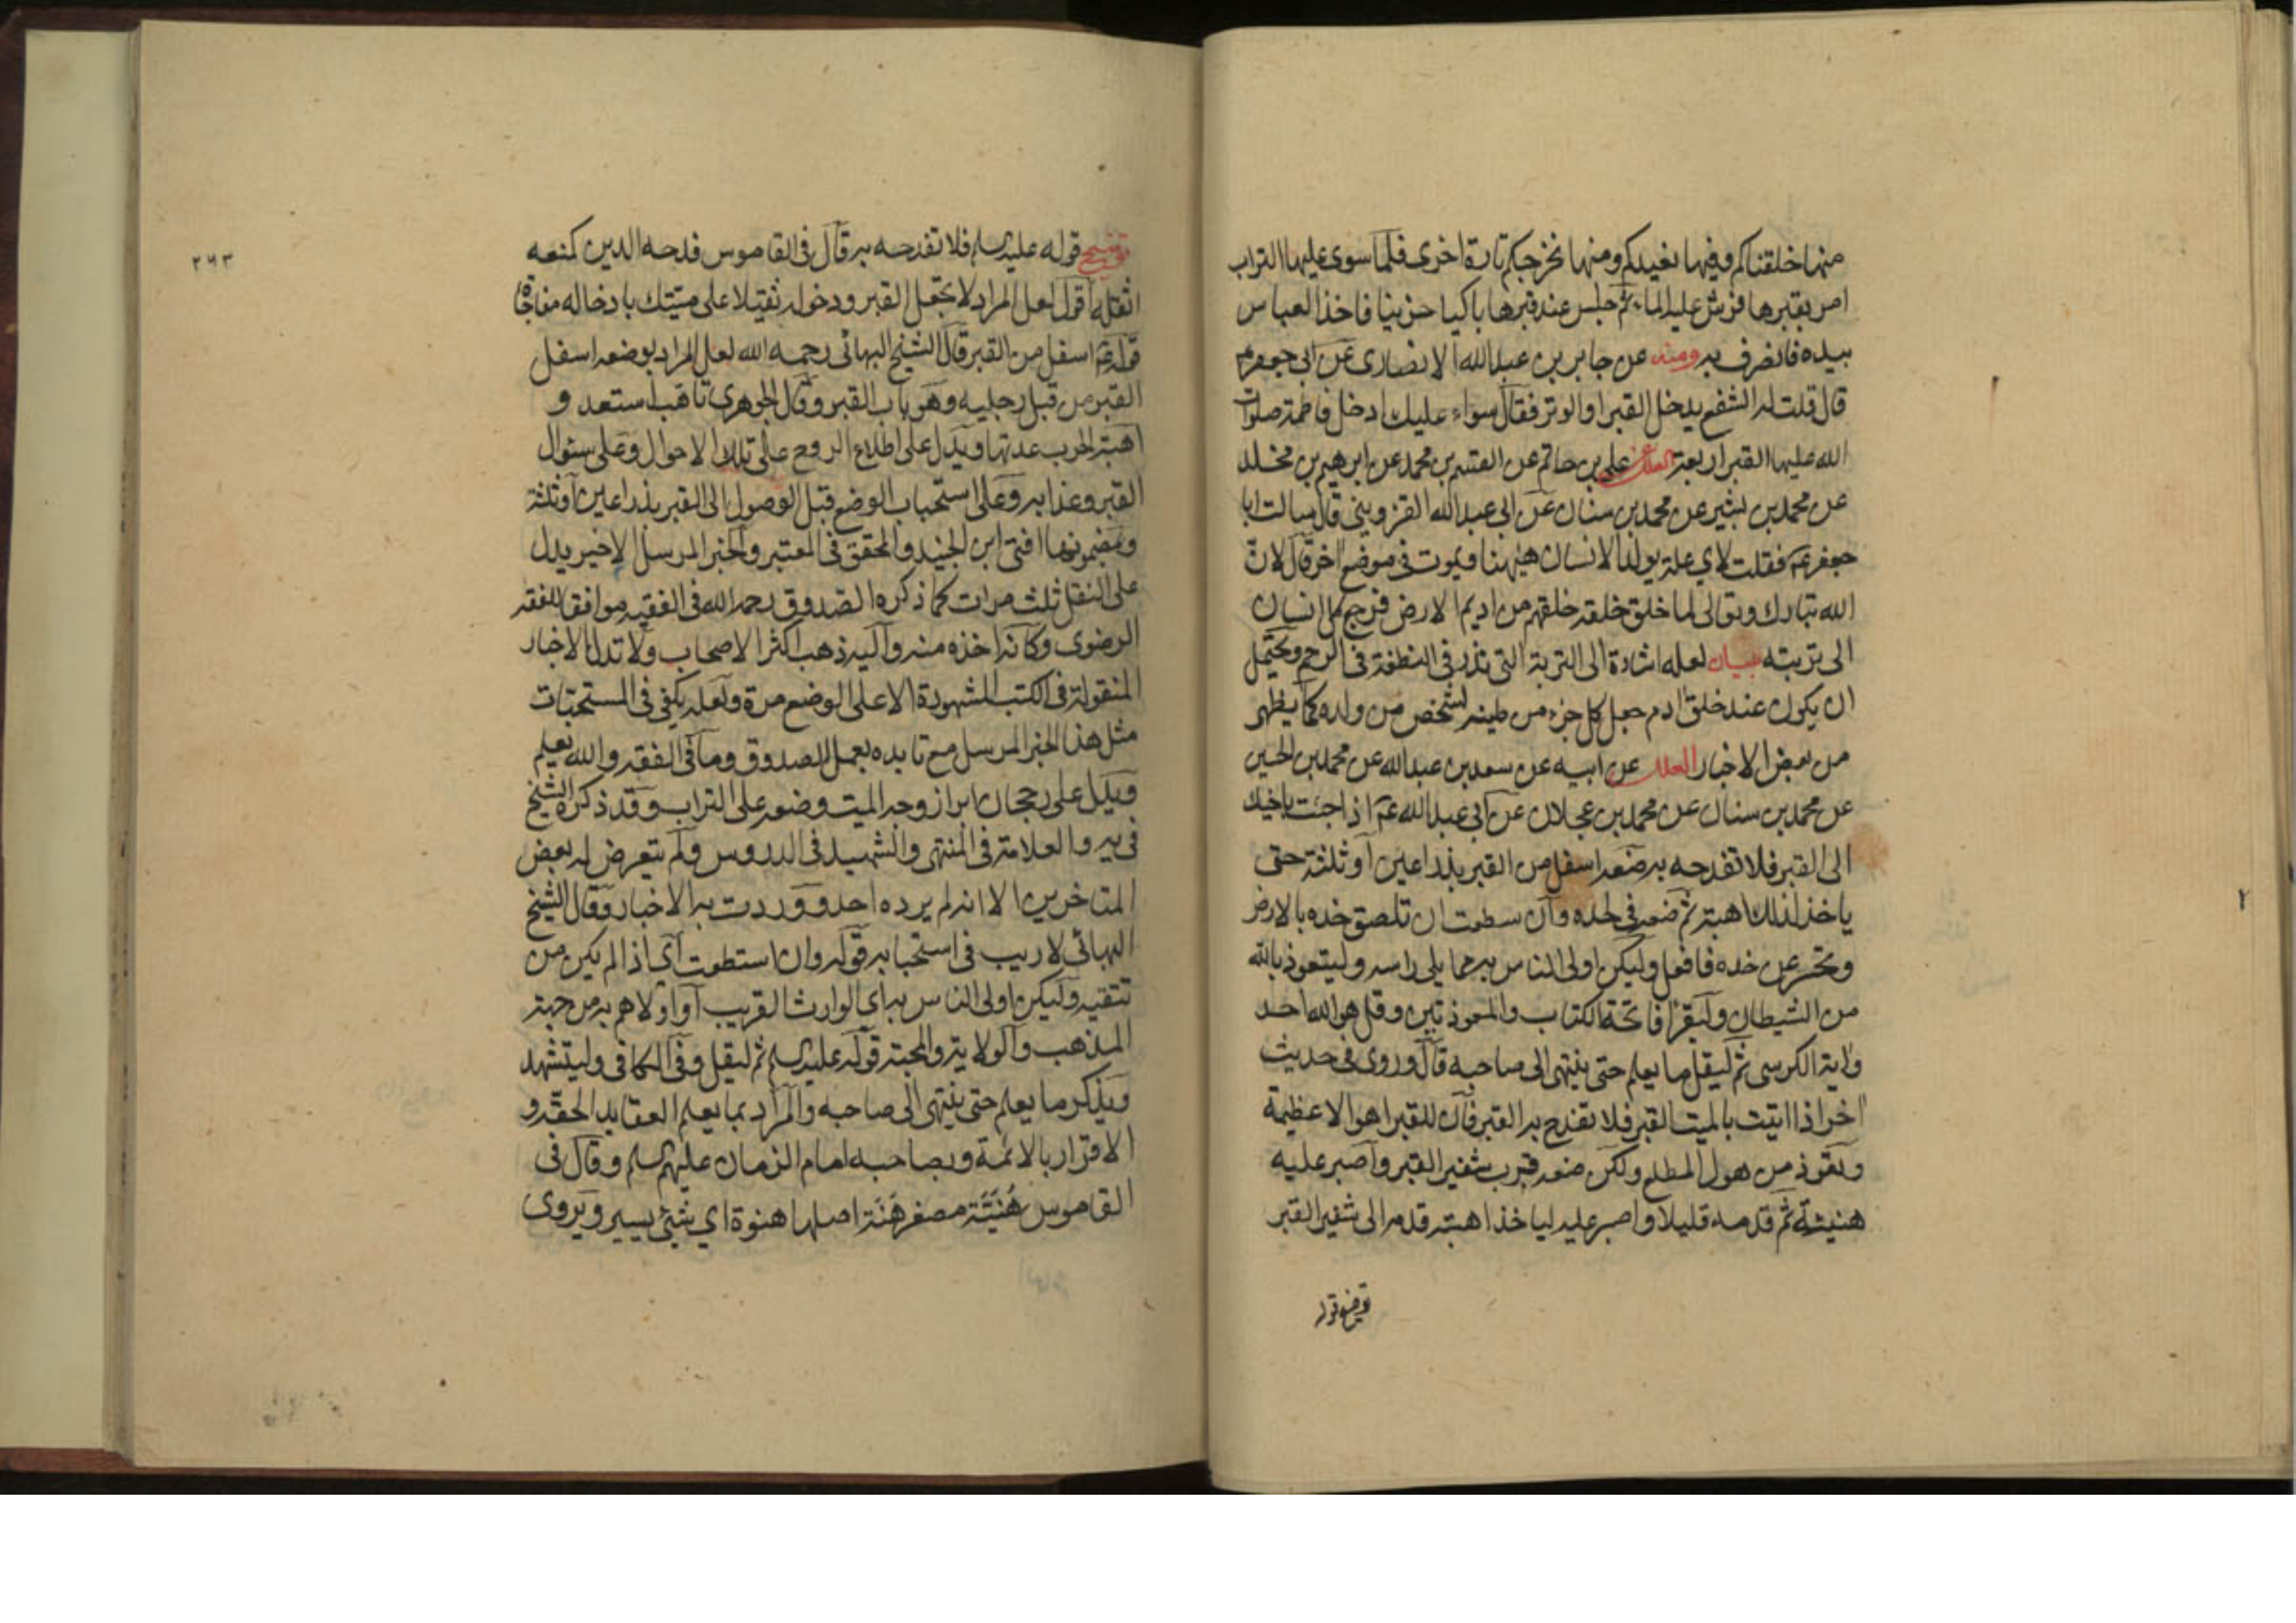 منها خلقناكم وفيها نعيدكم ومنها نخرجكم تارة اخرى فلما سوى عليها التراب
امر بقبرها فرش عليه الماء ثم جلس عند قبرها باكيا حزينا فاخذ العباس
بيده فانصرف به ومنه عن جابر بن عبد الله الانصارى عن ابى جعفر ع
قال قلت له الشفع يدخل القبر او الوتر فقال سواء عليك ادخل فاطمة صلوات
الله عليها القبر اربعة العلل عن على بن حاتم عن القسم بن محمد عن ابرهيم بن مخلد
عن محمد بن بشير عن محمد بن سنان عن ابى عبد الله القزوينى قال سالت ابا
جعفر ع فقلت لاي علة يولد الانسان هيهنا ويموت فى موضع اخر قال لان
الله تبارك وتعالى لما خلق خلقه خلقهم من اديم الارض فرجع كل انسان
الى تربته بيان لعله اشارة الى التربة التى تذر فى النطفة فى الرحم ويحتمل
ان يكون عند خلق ادم جعل كل جزء من طينه لشخص من ولده كما يظهر
من بعض الاخبار العلل عن ابيه عن سعد بن عبد الله عن محمد بن الحسين
عن محمد بن سنان عن محمد بن عجلان عن ابى عبد الله ع اذا جئت باخيك
الى القبر فلا تفدحه به ضعه اسفل من القبر بذراعين او ثلثة حتى
ياخذ لذلك اهبته ثم ضعه فى لحده وان سطعت ان تلصق خده بالارض
وتحسر عن خده فافعل وليكن اولى الناس به مما يلى راسه وليتعوذ بالله
من الشيطان وليقرأ فاتحة الكتاب والمعوذتين وقل هو الله احد
واية الكرسى ثم ليقل ما يعلم حتى ينتهى الى صاحبه قال وروى فى حديث
اخر اذا اتيت بالميت القبر فلا تفدح به القبر فان للقبر اهوالا عظيمة
وتعوذ من هول المطلع ولكن ضعه قرب شفير القبر واصبر عليه
هنيئة ثم قدمه قليلا واصبر عليه لياخذ اهبته ثم قدمه الى شفير القبر
توضيح قوله
٢٤٣
توضيح قوله عليه السلم فلا تفدحه به قال فى القاموس فدحه الدين كمنعه
اثقله اقول لعل المراد لا تجعل القبر ودخوله ثقيلا على ميتك بادخاله مفاجاة
قوله ع اسفل من القبر قال الشيخ البهائى رحمه الله لعل المراد بوضعه اسفل
القبر من قبل رجليه وهو باب القبر وقال الجوهرى تاهب استعد و
اهبة الحرب عدتها ويدل على اطلاع الروح على تلك الاحوال وعلى سئوال
القبر وعذابه وعلى استحباب الوضع قبل الوصول الى القبر بذراعين او ثلثة
وبمضمونها افتى ابن الجنيد والمحقق فى المعتبر والخبر المرسل الاخير يدل
على النقل ثلث مرات كما ذكره الصدوق رحمه الله فى الفقيه موافقا للفقه
الرضوى وكانه اخذه منه واليه ذهب اكثر الاصحاب ولا تدل الاخبار
المنقولة فى الكتب المشهورة الا على الوضع مرة ولعله يكفى فى المستحبات
مثل هذا الخبر المرسل مع تايده بعمل الصدوق وما فى الفقه والله يعلم
ويدل على رجحان ابراز وجه الميت وضعه على التراب وقد ذكره الشيخ
فى يه والعلامة فى المنتهى والشهيد فى الدروس ولم يتعرض له بعض
المتاخرين الا انه لم يرده احد ووردت به الاخبار وقال الشيخ
البهائى لا ريب فى استحبابه قوله وان استطعت اى اذا لم يكن من
تتقيه وليكن اولى الناس به اى الوارث القريب او اولاهم به من جهة
المذهب والولاية والمحبة قوله عليه السلم ثم ليقل وفى الكافى وليتشهد
ويذكر ما يعلم حتى ينتهى الى صاحبه والمراد بما يعلم العقايد الحقة و
الاقرار بالائمة وبصاحبه امام الزمان عليهم السلم وقال فى
القاموس هنية مصغر هنة اصلها هنوة اي شئ يسير ويروى